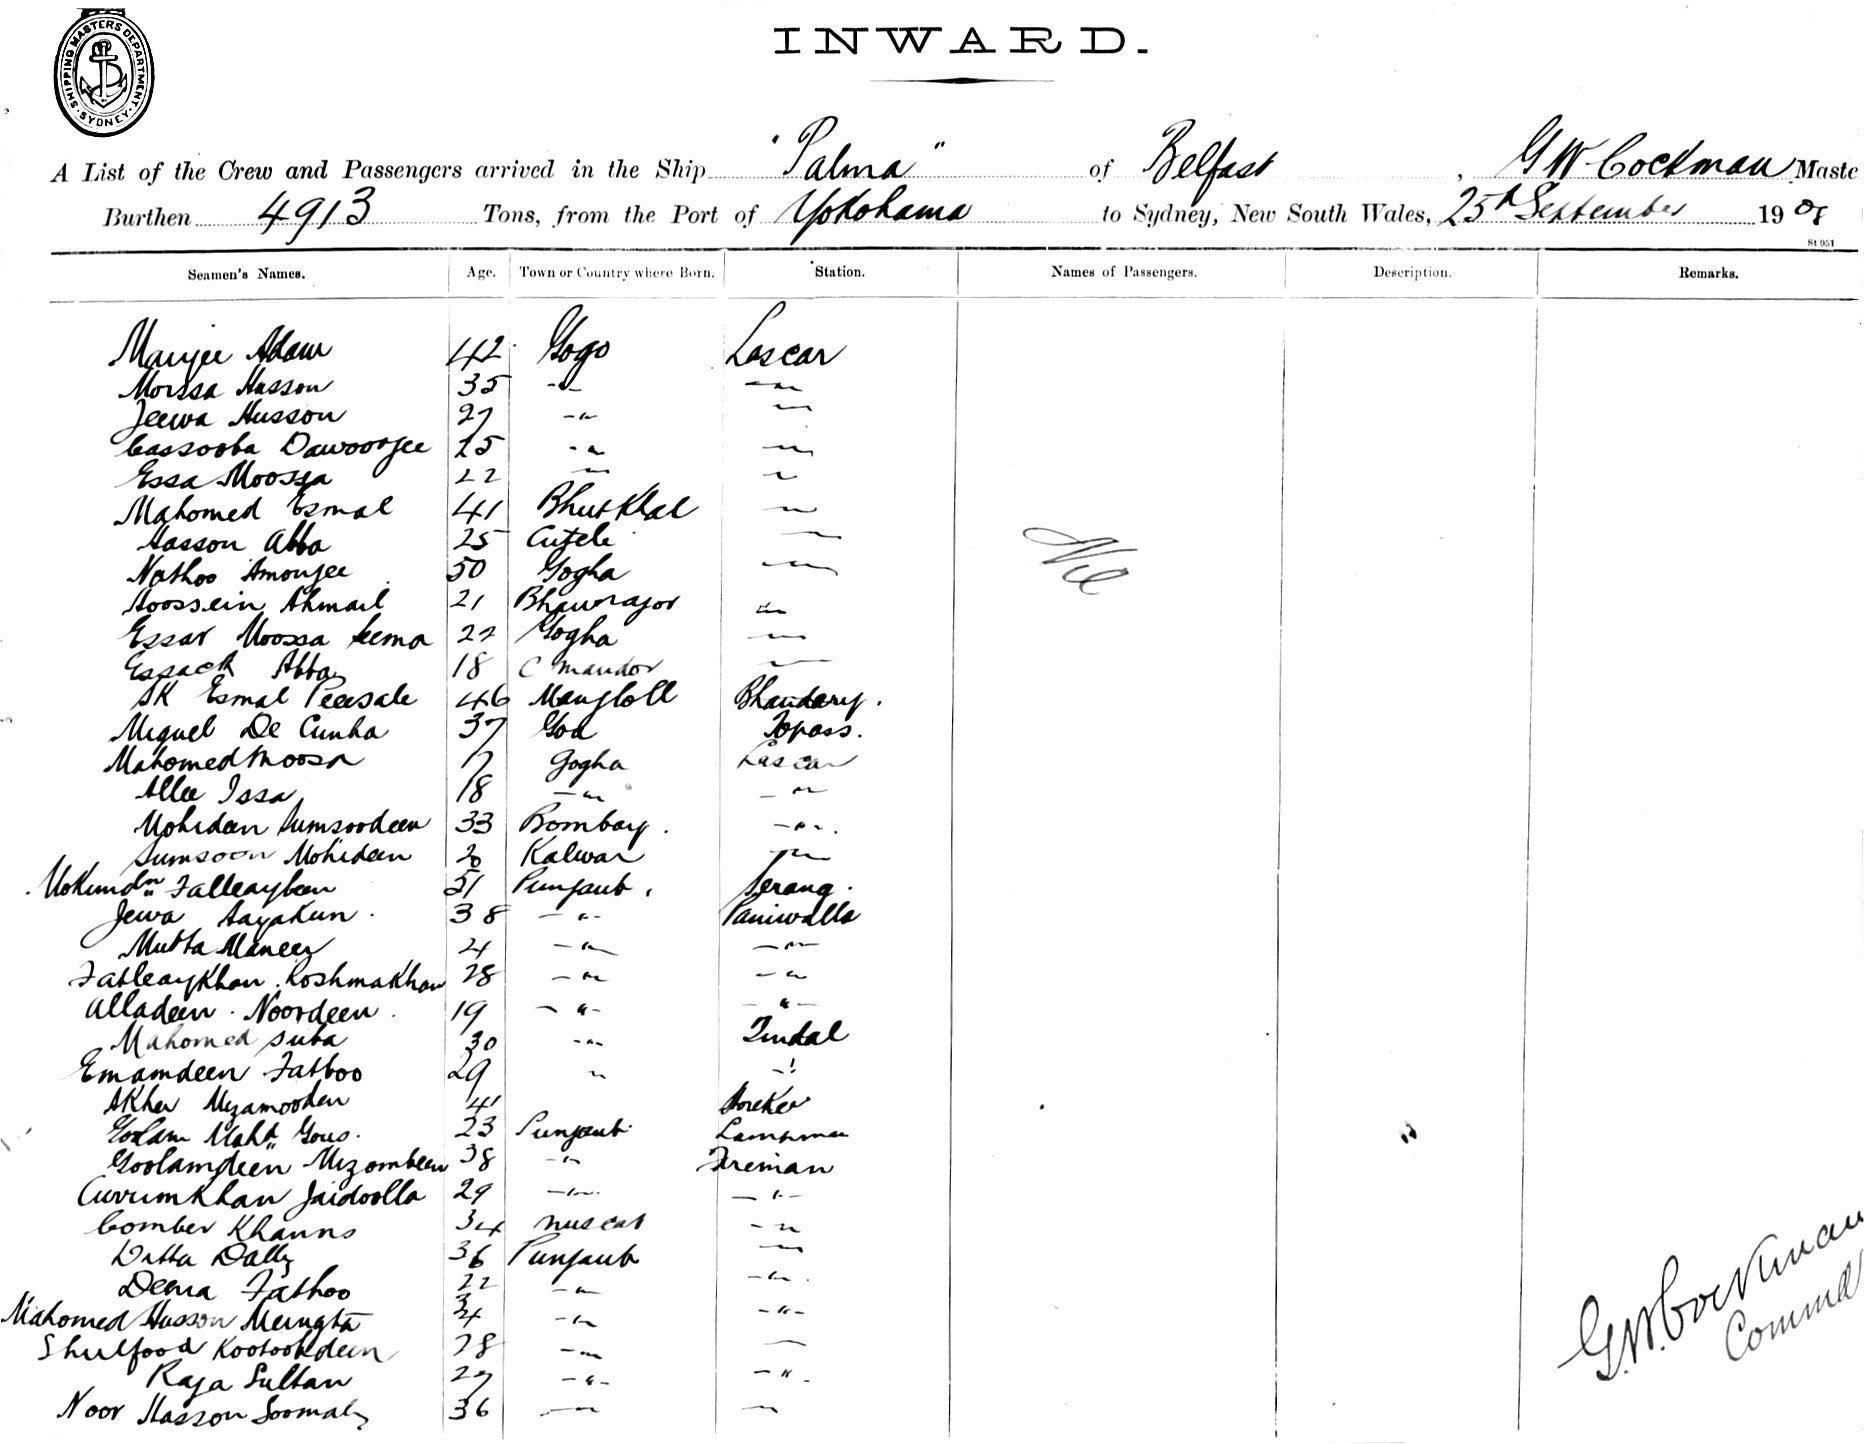 INWARD.
SHIPPING MASTERS DEPARTMENT. SYDNEY
A List of the Crew and Passengers arrived in the Ship "Palma" of Belfast, G W Cockman Maste
Burthen 4913 Tons, from the Port of Yokohama to Sydney, New South Wales, 25th September 1908
St 051
Seamen's Names. Age. Town or Country where Born. Station. Names of Passengers. Description. Remarks.
Manjee Adam 42 Gogo Lascar
Morssa Hasson 35 -"- -"-
Jeewa Husson 27 -"- -"-
Cassooba Dawoorjee 25 -"- -"-
Essa Moossa 22 -"- -"-
Mahomed Esmal 41 Bhutkhal -"-
Hasson Abba 25 -"-
Nathoo Amonjee 50 Gogha -"-
Nil
Hoossein Ahmail 21 Bhawnagor -"-
Essar Moossa 22 Gogha -"-
Essack Abba 18 C mandor -"-
SK Esmal Peersale 46 Bhandary.
Miguel De Cunha 37 Goa Topass.
Mahomed Moosa 17 Gogha Lascar
Allee Issa 18 -"- -"-
Mohideen Sumsoodeen 33 Bombay. -"-
Sumsoon Mohideen 20 Kalwar -"-
Falleaybeen 51 Punjaub. Serang.
Jewa Hayakun. 38 -"- Paniwalla
Mutta Maneer -"- -"-
Fatleaykhan. Roshmakhan 28 -"- -"-
Alladeen. Noordeen. 19 -"- -"-
Mahomed Suba 30 -"- Tindal
Emamdeen Fatboo 29 " -"-
Akher Myamooden 41
Goolam Maht. Gous. 23 Punjaub
Goolamdeen Mizombeen 38 -"- Fireman
Currumkhan Jaidoolla 29 -"- -"-
Comber Khanns 34 Muscat -"-
Ditta Dally 36 Punjaub -"-
Deena Fathoo 22 -"- -"-
Mahomed Husson Mungta 34 -"- -"-
Shulfood Kootoobdeen 28 -"- -"-
Raja Sultan 27 -"- -"-
Noor Hasson Soomaly 36 -"- -"-
G.W. Cockman
Commd